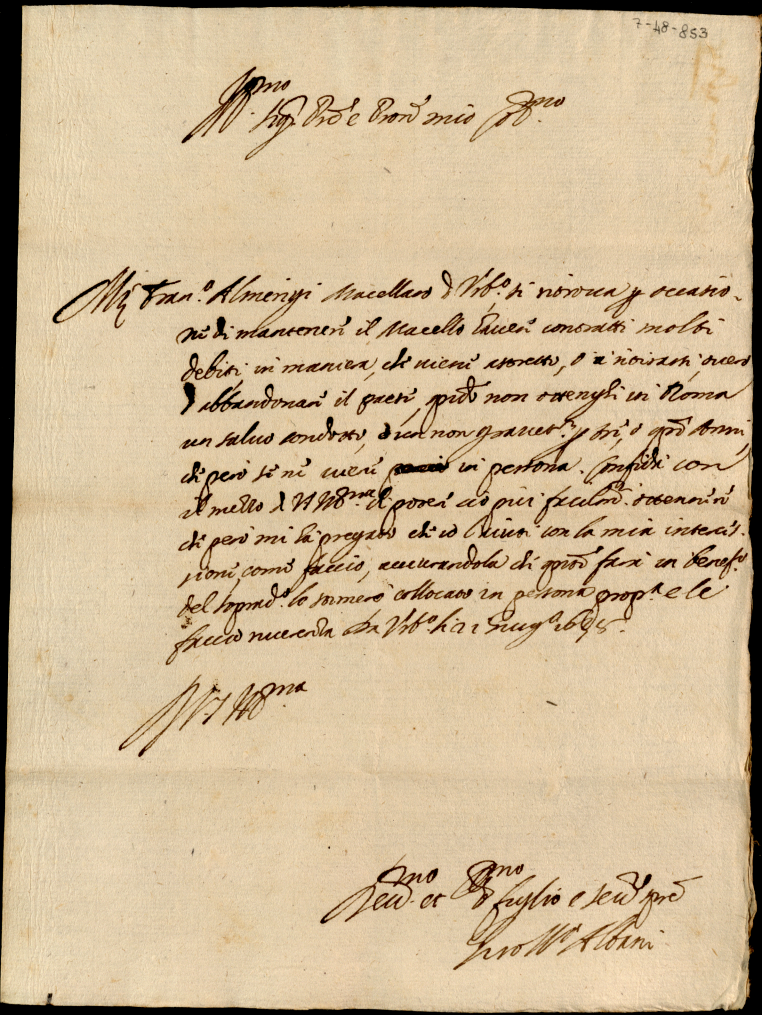 7-48-853
Ill.mo
Sig.r P.re e Pron.e mio Col.mo
M.r Fran.o Almerigi Macellaro d'Urb.o si ritrova p occasio-
ne di mantenere il Macello havere contratti molti
debiti, in maniera, che viene astretto, o a ritirarsi, overo
abbandonare il paese, q.do non ottenghi in Roma
un salvo condotto, p tre, o q.tro Anni,
che però se ne viene in persona. Confida con
il mezzo di V.S. Ill.ma di poter ciò più facilm.te ottenere
che però mi hà pregato che io l'aiuti con la mia interces-
sione, come faccio, assicurandola che q.to farà in benef.o
del soprad.o lo stimerò collocato in persona prop.a e le
faccio riverenza Da Urb.o li
D V.S. Ill.ma
Dev.mo et figlio e ser.re
Albani